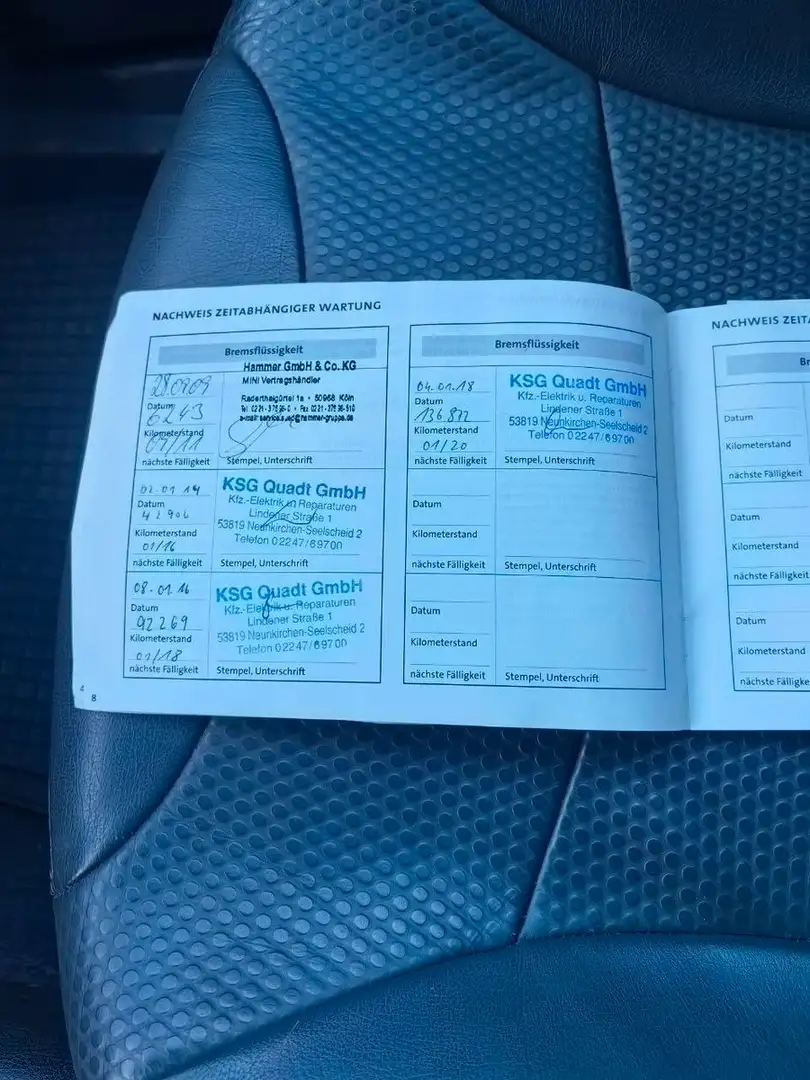 NACHWEIS ZEITABHÄNGIGER WARTUNG
Bremsflüssigkeit
28.09.09
Datum
6243
Kilometerstand
09/11
nächste Fälligkeit
Hammer GmbH & Co. KG
MINI Vertragshändler
Raderthalgürtel 1a • 50968 Köln
Stempel, Unterschrift
02.01.14
Datum
Kilometerstand
01/16
nächste Fälligkeit
KSG Quadt GmbH
Kfz.-Elektrik u. Reparaturen
Lindener Straße 1
53819 Neunkirchen-Seelscheid 2
Telefon 0 22 47 / 6 97 00
Stempel, Unterschrift
08.01.16
Datum
92269
Kilometerstand
01/18
nächste Fälligkeit
KSG Quadt GmbH
Kfz.-Elektrik u. Reparaturen
Lindener Straße 1
53819 Neunkirchen-Seelscheid 2
Telefon 0 22 47 / 6 97 00
Stempel, Unterschrift
8
Bremsflüssigkeit
04.01.18
Datum
136.822
Kilometerstand
01/20
nächste Fälligkeit
KSG Quadt GmbH
Kfz.-Elektrik u. Reparaturen
Lindener Straße 1
53819 Neunkirchen-Seelscheid 2
Telefon 0 22 47 / 6 97 00
Stempel, Unterschrift
Datum
Kilometerstand
nächste Fälligkeit
Stempel, Unterschrift
Datum
Kilometerstand
nächste Fälligkeit
Stempel, Unterschrift
NACHWEIS ZEITA
Br
Datum
Kilometerstand
nächste Fälligkeit
Datum
Kilometerstand
nächste Fälligkeit
Datum
Kilometerstand
nächste Fällige